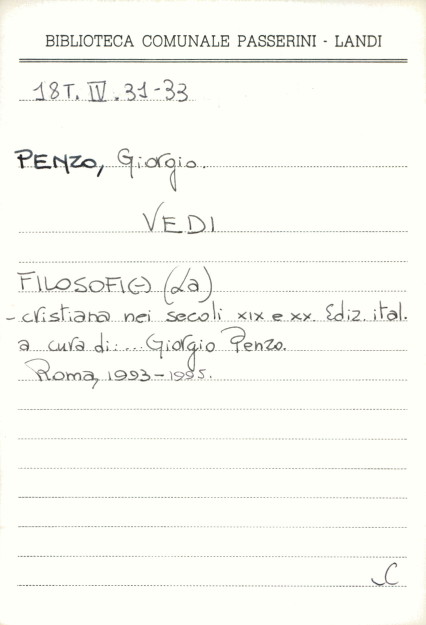 BIBLIOTECA COMUNALE PASSERINI - LANDI
18T. IV. 31-33
PENZO, Giorgio.
VEDI
FILOSOFI(-) (La)
- cristiana nei secoli XIX e XX. Ediz. ital.
a cura di: ... Giorgio Penzo.
Roma, 1993-1995.
C